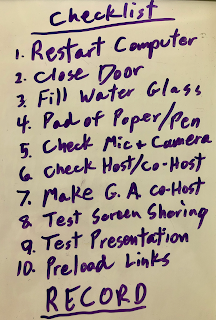 Checklist
1. Restart Computer
2. Close Door
3. Fill Water Glass
4. Pad of Paper/Pen
5. Check Mic + Camera
6. Check Host/Co-Host
7. Make G.A. Co-Host
8. Test Screen Sharing
9. Test Presentation
10. Preload Links
RECORD